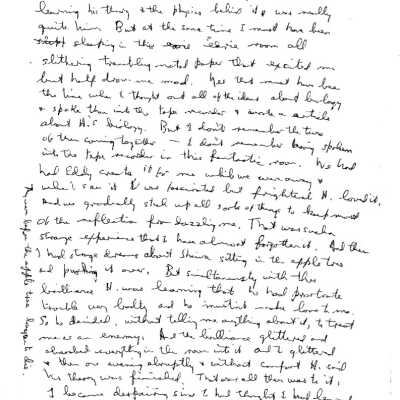 learning his theory & the physics behind it & was really
quite him. But at the same time I must have been
sleeping in this eerie room all
slithering trembling metal paper that excited me
but half drove me mad. Yes that must have been
the time when I thought out all of the ideas about biology
& spoke them into the tape recorder & wrote a article
about H's biology. But I don't remember the two
of them coming together — I don't remember being spoken
into the tape recorder in this fantastic room. We had
had Eddy create it for me while we were away &
when I saw it I was fascinated but frightened. H. loved it.
And we gradually stuck up all sorts of things to keep most
of the reflection from dazzling me. That was such a
strange experience that I have almost forgotten it. And then
I had strange dreams about Shiva sitting in the apple tree
and presiding it over. But simultaneously with this
brilliance H. was learning that he had prostrate
trouble very badly and he mustn't make love to me.
So he decided, without telling me anything about it, to treat
me as an enemy. And the brilliance glittered and
absorbed everything in the room into it and I glittered
& then one evening abruptly & without comfort H. said
his theory was finished. That was all there was to it.
I became despairing since I had thought I had
the apple tree began to die.